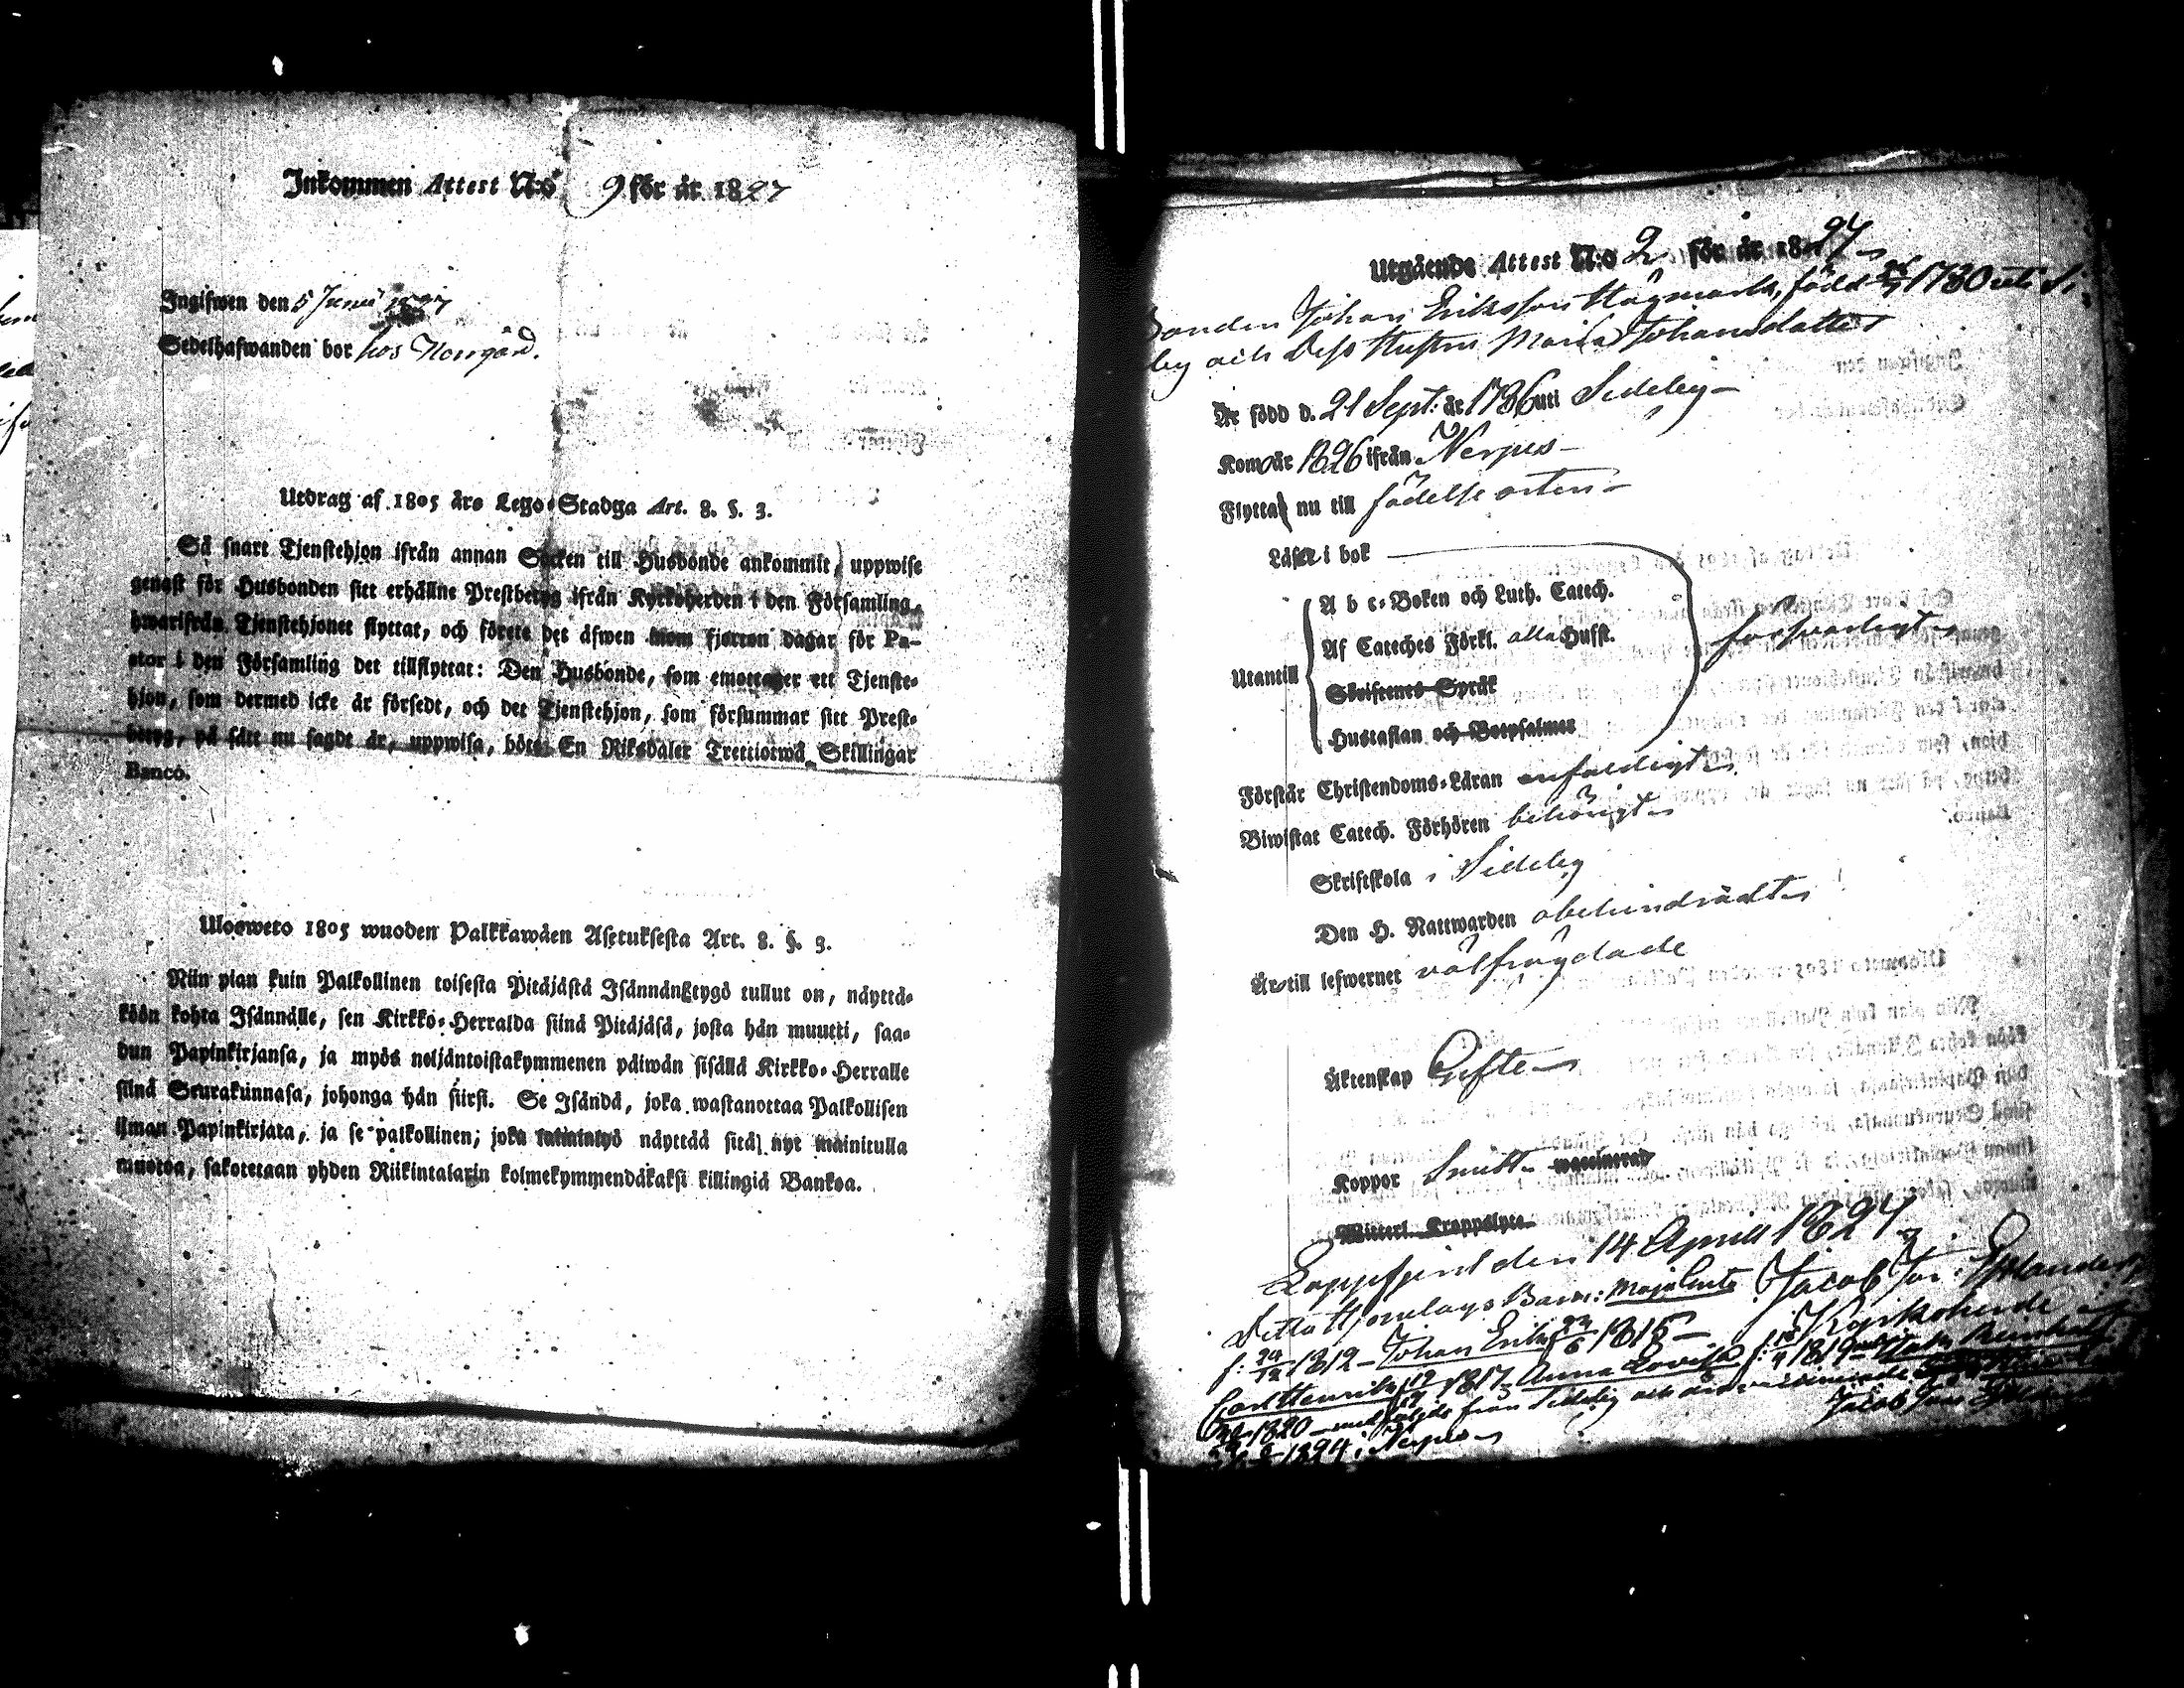 Inkommen Attest N:o 9 för år 1827
Ingifwen den 5 Junii 1827
Sedelhafwanden bor hos Norrgård.
Utdrag af 1805 års Lego-Stadga Art. 8. §. 3.
Så snart Tjenstehjon ifrån annan Socken till Husbonde ankommit, uppwise
genast för Husbonden sitt erhållne Prestbetyg ifrån Kyrkoherden i den Församling,
hwarifrån Tjenstehjonet flyttat, och förete det äfwen inom fjorton dagar för Pa-
stor i den Församling det tillflyttat: Den Husbonde, som emottager ett Tjenste-
hjon, som dermed icke är försedt, och det Tjenstehjon, som försummar sitt Prest-
betyg, på sätt nu sagdt är, uppwisa, böte En Riksdaler Trettiotwå Skillingar
Banco.
Ulosweto 1805 wuoden Palkkawäen Asetuksesta Art. 8. §. 3.
Niin pian kuin Palkollinen toisesta Pitäjästä Isännänstygö tullut on, näyttä-
köön kohta Isännälle, sen Kirkko-Herralda siinä Pitäjäsä, josta hän muutti, saa-
dun Papinkirjansa, ja myös neljäntoistakymmenen päiwän sisällä Kirkko-Herralle
siinä Seurakunnasa, johonga hän siirsi. Se Isändä, joka wastanottaa Palkollisen
ilman Papinkirjata, ja se palkollinen, joka laiminlyö näyttää sitä nyt mainitulla
muotoa, sakotetaan yhden Riikintalarin kolmekymmendäkaksi killingiä Bankoa.
Utgående Attest N:o 2 för år 1827
Bonden Johan Eriksson Hägmark, född 1780 uti Si-
deby och dess Hustru Maria Johansdotter
Är född d. 21 Sept: år 1786 uti Sideby
Kom år 1826 ifrån Nerpes
Flytta nu till födelse orten
Läser i bok
A b c-Boken och Luth. Catech.
Af Cateches Förkl. alla Hufst.
Utantill
försvarligt
Skriftenes Språk
Hustaflan och Botpsalmer
Förstår Christendoms-Läran enfaldigt
Biwistat Catech. Förhören behörigt
Skriftskola i Sideby
Den H. Nattwarden obehindradt
Är till lefwernet välfrägdade
Äktenskap Gifte
Koppor haft waccinerad
Lappfjerd den 14 Aprill 1827
Detta Hjonelags Barn: Maja Greta Jacob Jon:
f. 24/12 1812 Johan Erik 1815 Kyrkoherde
Carl Henrik 1817 Anna Lovisa f. 1819
1820 från Sideby och
1824 i Nerpes